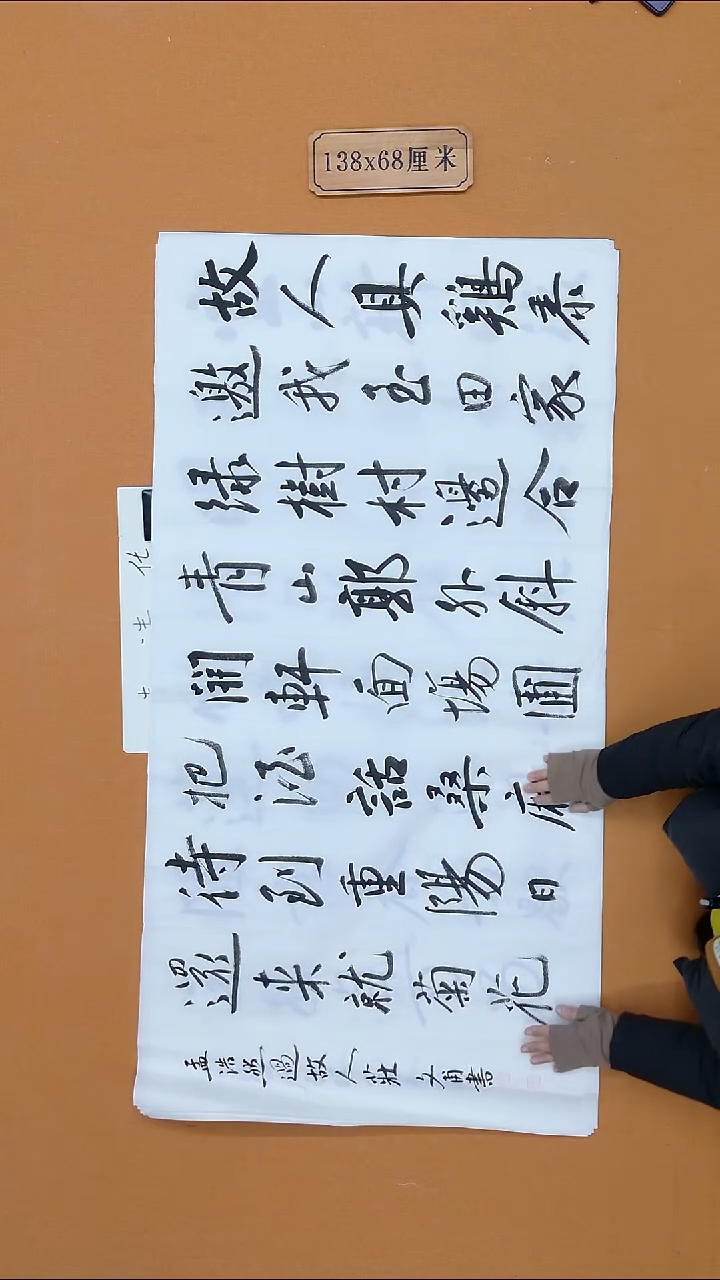 138x68厘米
故人具鷄黍
邀我至田家
緑樹村邊合
青山郭外斜
開軒面場圃
把酒話桑麻
待到重陽日
還来就菊花
孟浩然過故人莊 甫書